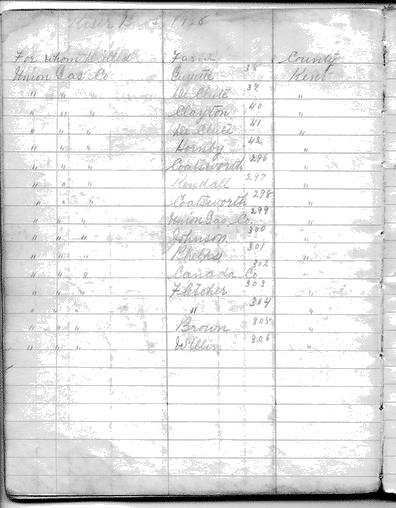 For whom Drilled Farm County
Union Gas Co 38 Kent
" " " De Clute 39 "
" " " Clayton 40 "
" " " De Clute 41 "
" " " Hornby 42 "
" " " Coatsworth 296 "
" " " Kendall 297 "
" " " Coatsworth 298 "
" " " Union Gas Co 299 "
" " " Johnson 300 "
" " " Phelps 301 "
" " " Canada Co 302 "
" " " Fletcher 303 "
" " " " 304 "
" " " Brown 305 "
" " " Willin 306 "